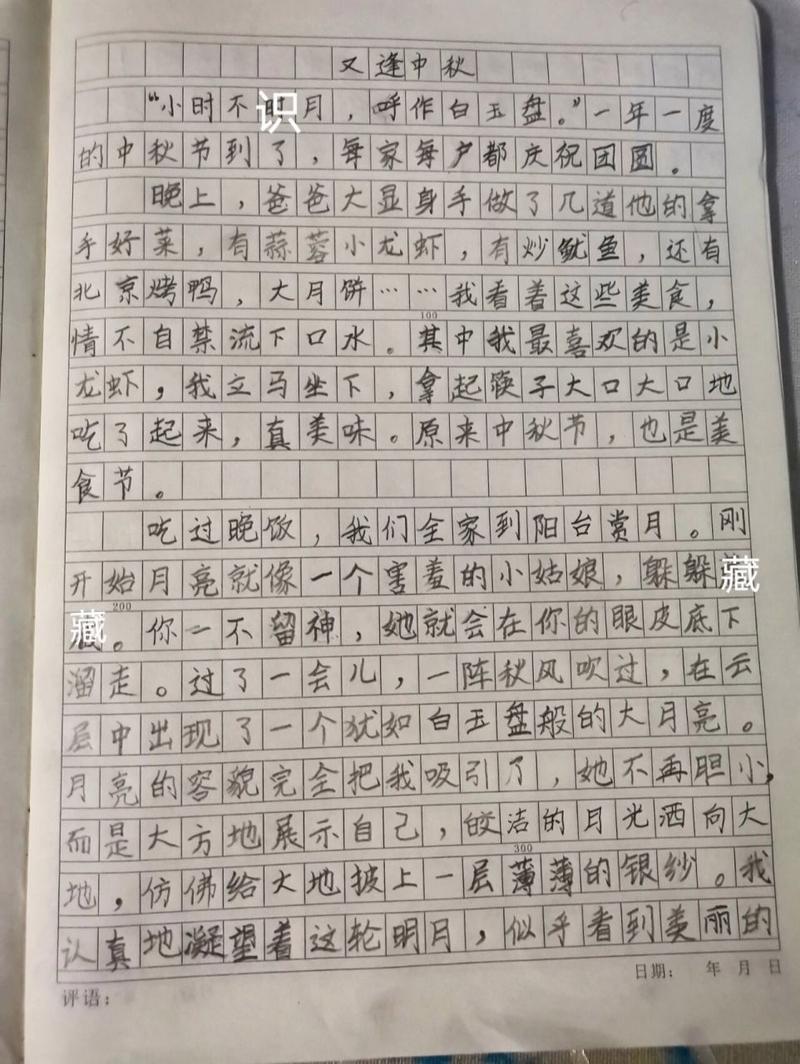 又逢中秋
“小时不识月，呼作白玉盘。”一年一度
的中秋节到了，每家每户都庆祝团圆。
晚上，爸爸大显身手做了几道他的拿
手好菜，有蒜蓉小龙虾，有炒鱿鱼，还有
北京烤鸭，大月饼……我看着这些美食，
100
情不自禁流下口水。其中我最喜欢的是小
龙虾，我立马坐下，拿起筷子大口大口地
吃了起来，真美味。原来中秋节，也是美
食节。
吃过晚饭，我们全家到阳台赏月。刚
开始月亮就像一个害羞的小姑娘，躲躲藏
200
藏。你一不留神，她就会在你的眼皮底下
溜走。过了一会儿，一阵秋风吹过，在云
层中出现了一个犹如白玉盘般的大月亮。
月亮的容貌完全把我吸引了，她不再胆小，
而是大方地展示自己，皎洁的月光洒向大
300
地，仿佛给大地披上一层薄薄的银纱。我
认真地凝望着这轮明月，似乎看到美丽的
日期： 年 月 日
评语：